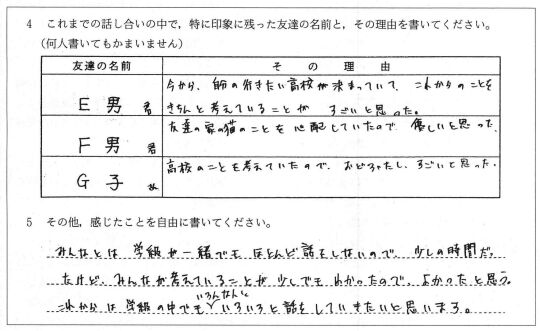 4 これまでの話し合いの中で，特に印象に残った友達の名前と，その理由を書いてください。
（何人書いてもかまいません）
友達の名前 その理由
E男君 今から、自分の行きたい高校が決まっていて、これからのことを
きちんと考えていることが すごいと思った。
F男君 友達の家の猫のことを心配していたので 優しいと思った
G子さん 高校のことを考えていたので、おどろいたし、すごいと思った。
5 その他，感じたことを自由に書いてください。
みんなとは 学級が一緒でも ほとんど話をしないので、少しの時間だ。
たけど、みんなが考えていることが少しでもわかったので、よかったと思う。
いろんな人と
これからは学級の中でもいろいろと話をしていきたいと思います。